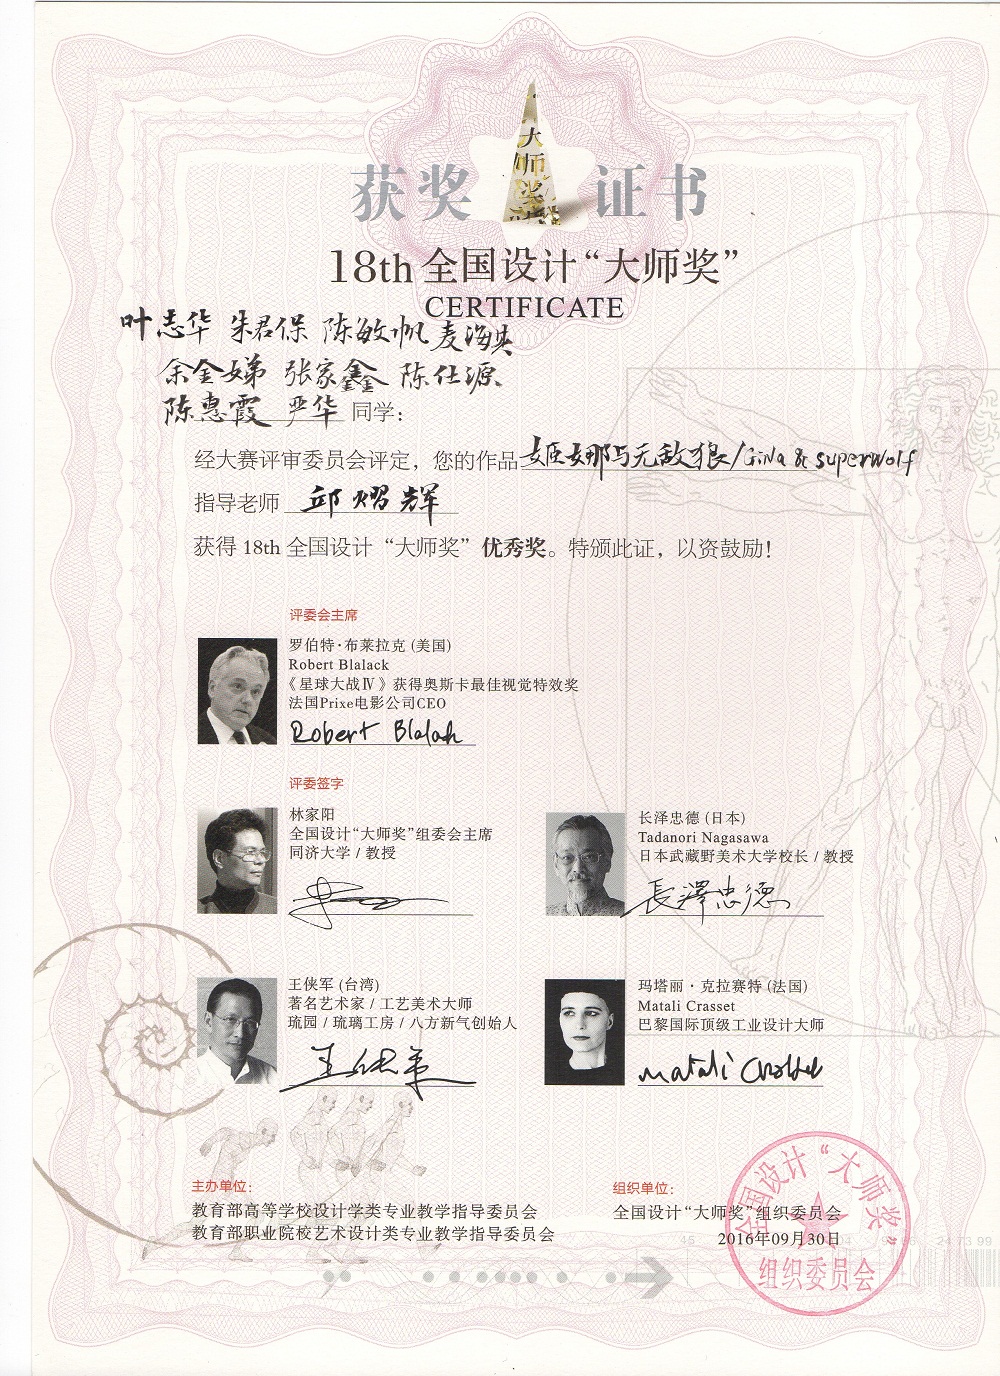 大师奖
获奖 证书
18th 全国设计“大师奖”
CERTIFICATE
叶志华 朱君保 陈敏帆 麦海英
余金娣 张家鑫 陈仕源
陈惠霞 严华 同学:
经大赛评审委员会评定，您的作品 姬娜与无敌狼/Gina & superwolf
指导老师 邱熠辉
获得 18th 全国设计“大师奖”优秀奖。特颁此证，以资鼓励!
评委会主席
罗伯特·布莱拉克 (美国)
Robert Blalack
《星球大战Ⅳ》获得奥斯卡最佳视觉特效奖
法国Prixe电影公司CEO
Robert Blalack
评委签字
林家阳
全国设计“大师奖”组委会主席
同济大学 / 教授
长泽忠德 (日本)
Tadanori Nagasawa
日本武藏野美术大学校长 / 教授
長澤忠德
王侠军 (台湾)
著名艺术家 / 工艺美术大师
琉园 / 琉璃工房 / 八方新气创始人
王侠军
玛塔丽·克拉赛特 (法国)
Matali Crasset
巴黎国际顶级工业设计大师
Matali Crasset
主办单位:
教育部高等学校设计学类专业教学指导委员会
教育部职业院校艺术设计类专业教学指导委员会
组织单位:
全国设计“大师奖”组织委员会
2016年09月30日
全国设计“大师奖”
组织委员会
24 73 99